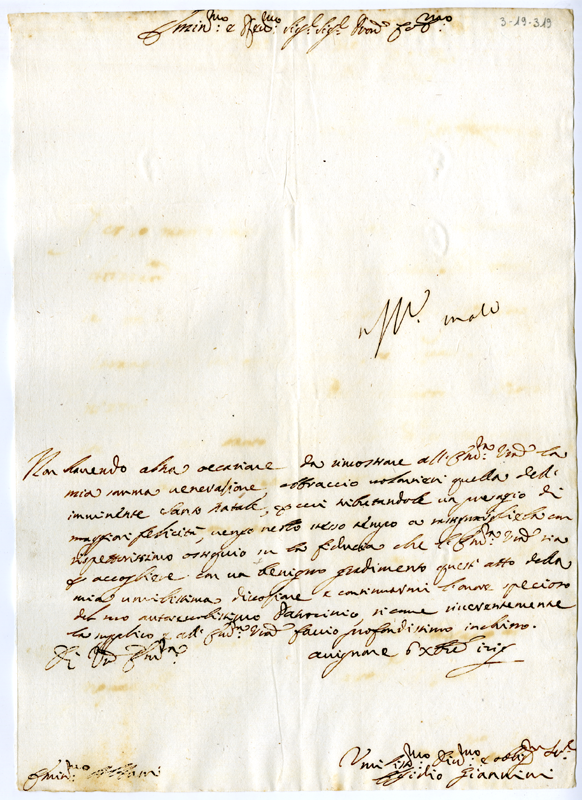 3-19-319
Emin.mo e Rev.mo Sig.r Sig.r Pron.
Non havendo altra occasione da rimostrare all' Em.za V.ra la
mia somma venerazione, abbraccio volontieri quella dell'
imminente Santo Natale, per cui tributandole un presagio di
maggiori felicità, vengo nello stesso tempo a rassegnargliela con
rispettosissimo ossequio in la fiducia che l' Em.za V.ra sia
p accogliere con un benigno gradimento quest' atto della
mia umilissima divozione, e continuarmi l'onore specioso
del suo autorevolissimo Patrocinio, sicome riverentemente
la supplico e all' Em.za V.ra faccio profondissimo inchino.
Di V.ra Em.za
avignone 6 Xbre
Umiliss.mo Div.mo e oblig.mo
Egidio Giannini
Emin.mo